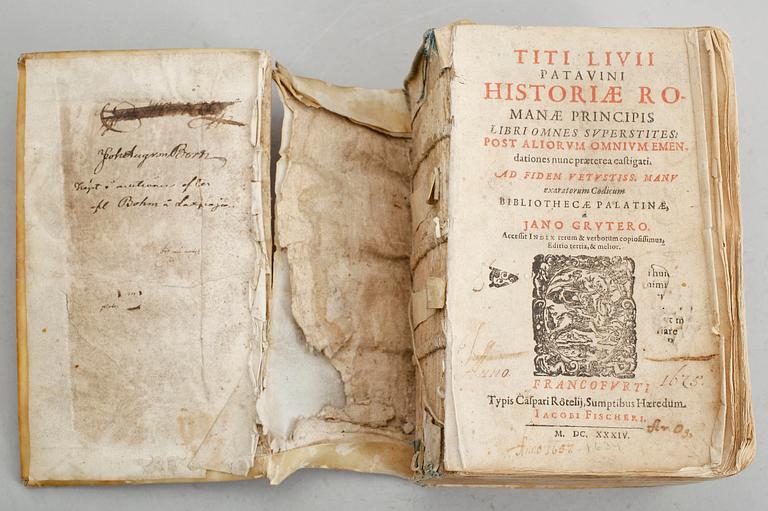 Joh: August Bork
köpt å auctionen efter
afl. Bohm å
TITI LIVII
PATAVINI
HISTORIÆ RO-
MANÆ PRINCIPIS
LIBRI OMNES SVPERSTITES:
POST ALIORVM OMNIVM EMEN-
dationes nunc præterea castigati.
AD FIDEM VETVSTISS. MANV
exaratorum Codicum
BIBLIOTHECÆ PALATINÆ,
à
JANO GRVTERO.
Accessit INDEX rerum & verborum copiosissimus,
Editio tertia, & melior.
FRANCOFVRTI
Anno 1675.
Typis Caspari Rôtelij, Sumptibus Hæredum
IACOBI FISCHERI.
M. DC. XXXIV.
Anno 1657 1634